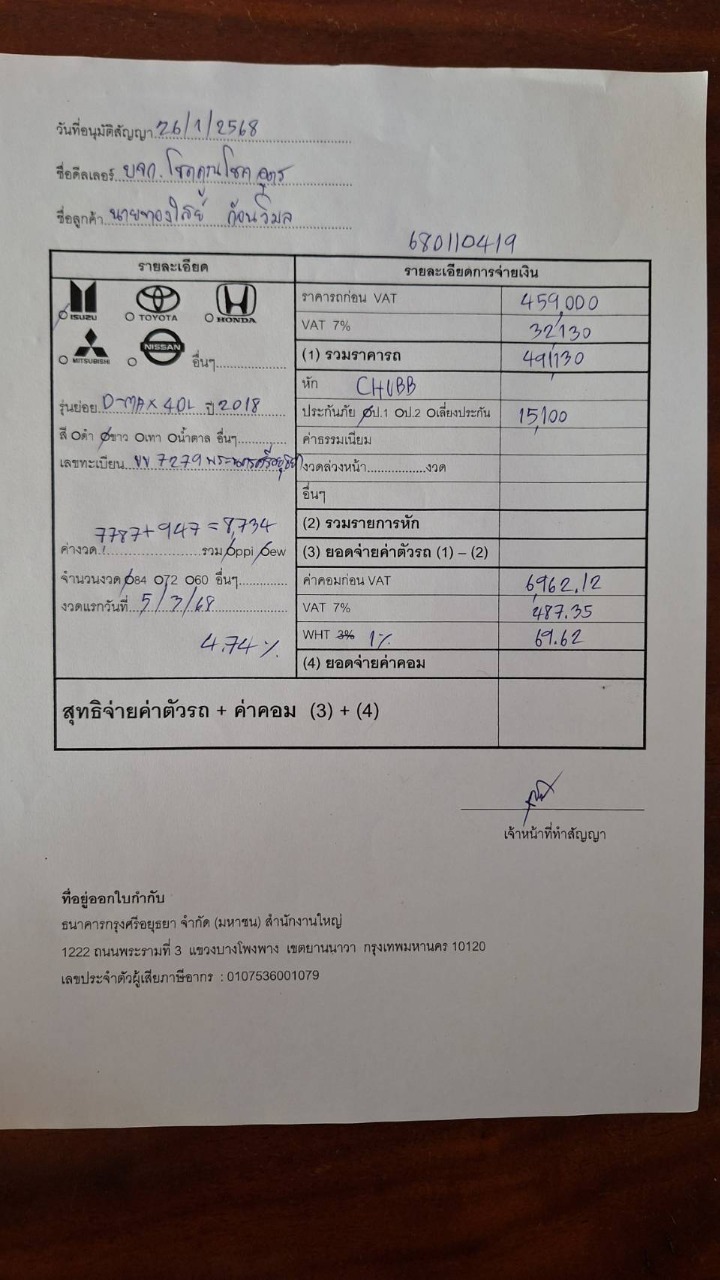 วันที่อนุมัติสัญญา 26/1/2568
ชื่อดีลเลอร์ บจก. โชคคูณโชค อุดร
ชื่อลูกค้า นายทองใสย์ ก้อนวิมล
680110419
รายละเอียด
รายละเอียดการจ่ายเงิน
ISUZU TOYOTA HONDA
MITSUBISHI NISSAN อื่นๆ
ราคารถก่อน VAT 459,000
VAT 7% 32,130
(1) รวมราคารถ 491,130
หัก CHUBB
รุ่นย่อย D-MAX 4DL ปี 2018
ประกันภัย ป.1 ป.2 เลี่ยงประกัน 15,100
สี ดำ ขาว เทา น้ำตาล อื่นๆ
ค่าธรรมเนียม
เลขทะเบียน ขข 7279 พระนครศรีอยุธยา
งวดล่วงหน้า งวด
อื่นๆ
(2) รวมรายการหัก
7787+947 = 8,734
ค่างวด รวม ppi ew
(3) ยอดจ่ายค่าตัวรถ (1) – (2)
จำนวนงวด 84 72 60 อื่นๆ
ค่าคอมก่อน VAT 6,962.12
งวดแรกวันที่ 5/3/68
VAT 7% 487.35
4.74 %
WHT 3% 1% 69.62
(4) ยอดจ่ายค่าคอม
สุทธิจ่ายค่าตัวรถ + ค่าคอม (3) + (4)
เจ้าหน้าที่ทำสัญญา
ที่อยู่ออกใบกำกับ
ธนาคารกรุงศรีอยุธยา จำกัด (มหาชน) สำนักงานใหญ่
1222 ถนนพระรามที่ 3 แขวงบางโพงพาง เขตยานนาวา กรุงเทพมหานคร 10120
เลขประจำตัวผู้เสียภาษีอากร : 0107536001079